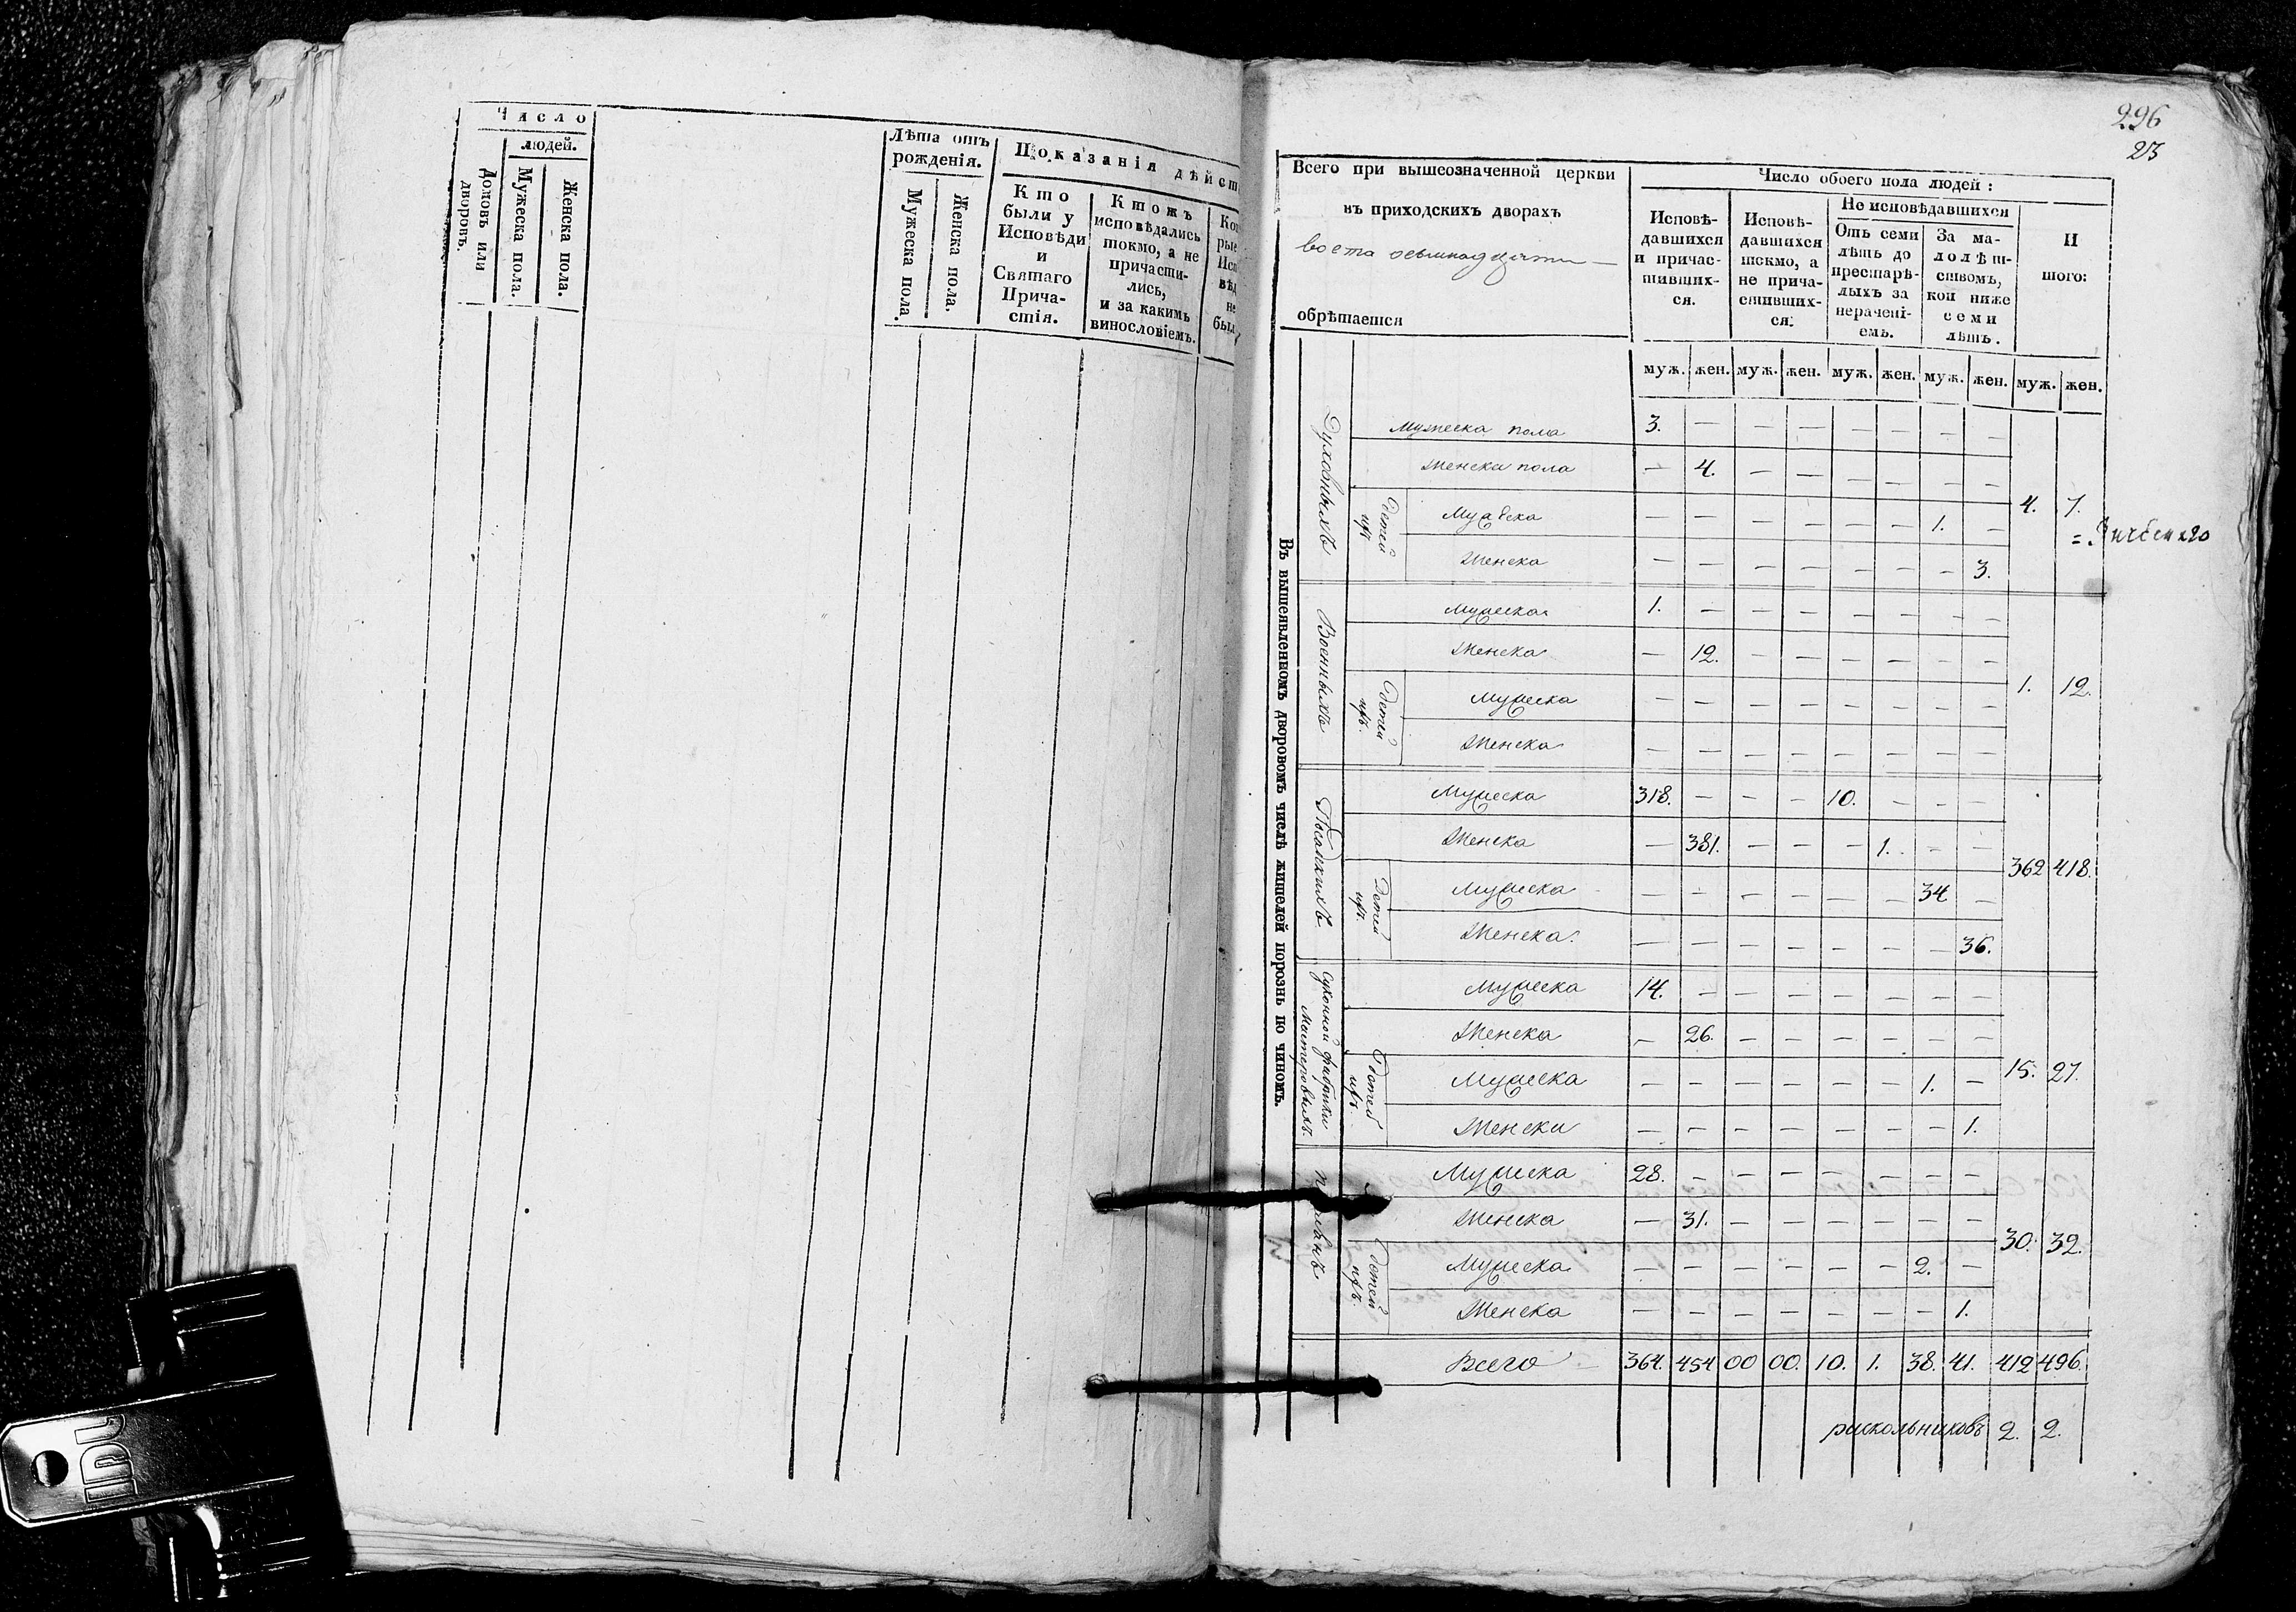 Число
людей.
Домовъ или дворовъ.
Мужеска пола.
Женска пола.
Лѣта отъ рожденія.
Мужеска пола.
Женска пола.
Показанія дѣйст
Кто были у Исповѣди и Святаго Причастія.
Ктожъ исповѣдались токмо, а не причастились, и за какимъ винословіемъ.
296
23
Всего при вышеозначенной церкви
въ приходскихъ дворахъ
восмнадцати —
обрѣтается
Число обоего пола людей:
Исповѣ-
давшихся
и причас-
тивших-
ся.
Исповѣ-
давшихся
токмо, а
не прича-
стивших-
ся:
Не исповѣдавшихся
Отъ семи
лѣтъ до
престарѣ-
лыхъ за
нерачені-
емъ.
За ма-
лолѣт-
ствомъ,
кои ниже
семи
лѣтъ.
И
того:
муж. жен. муж. жен. муж. жен. муж. жен. муж. жен.
Въ вышеявленномъ дворовомъ числѣ жителей порознь по чиномъ.
Духовныхъ
Мужеска пола 3. — — — — — — —
Женска пола — 4. — — — — — —
Детей ихъ
Мужеска — — — — — — 1. —
Женска — — — — — — — 3.
4. 7.
Военныхъ
Мужеска 1. — — — — — — —
Женска — 12. — — — — — —
Детей ихъ.
Мужеска — — — — — — — —
Женска — — — — — — — —
1. 12.
Посадкихъ
Мужеска 318. — — — 10. — — —
Женска — 381. — — — 1. — —
Детей ихъ.
Мужеска — — — — — — 34 —
Женска. — — — — — — — 36.
362 418.
Суконной фабрики
Мастеровыхъ.
Мужеска 14. — — — — — — —
Женска — 26. — — — — — —
Детей ихъ.
Мужеска — — — — — — 1. —
Женски — — — — — — — 1.
15. 27.
Мужеска 28. — — — — — — —
Женска — 31. — — — — — —
Детей ихъ.
Мужеска — — — — — — 2. —
Женска — — — — — — — 1.
30. 32.
Всего — 364. 454 00 00. 10. 1. 38. 41. 412 496.
раскольниковъ 2. 2.